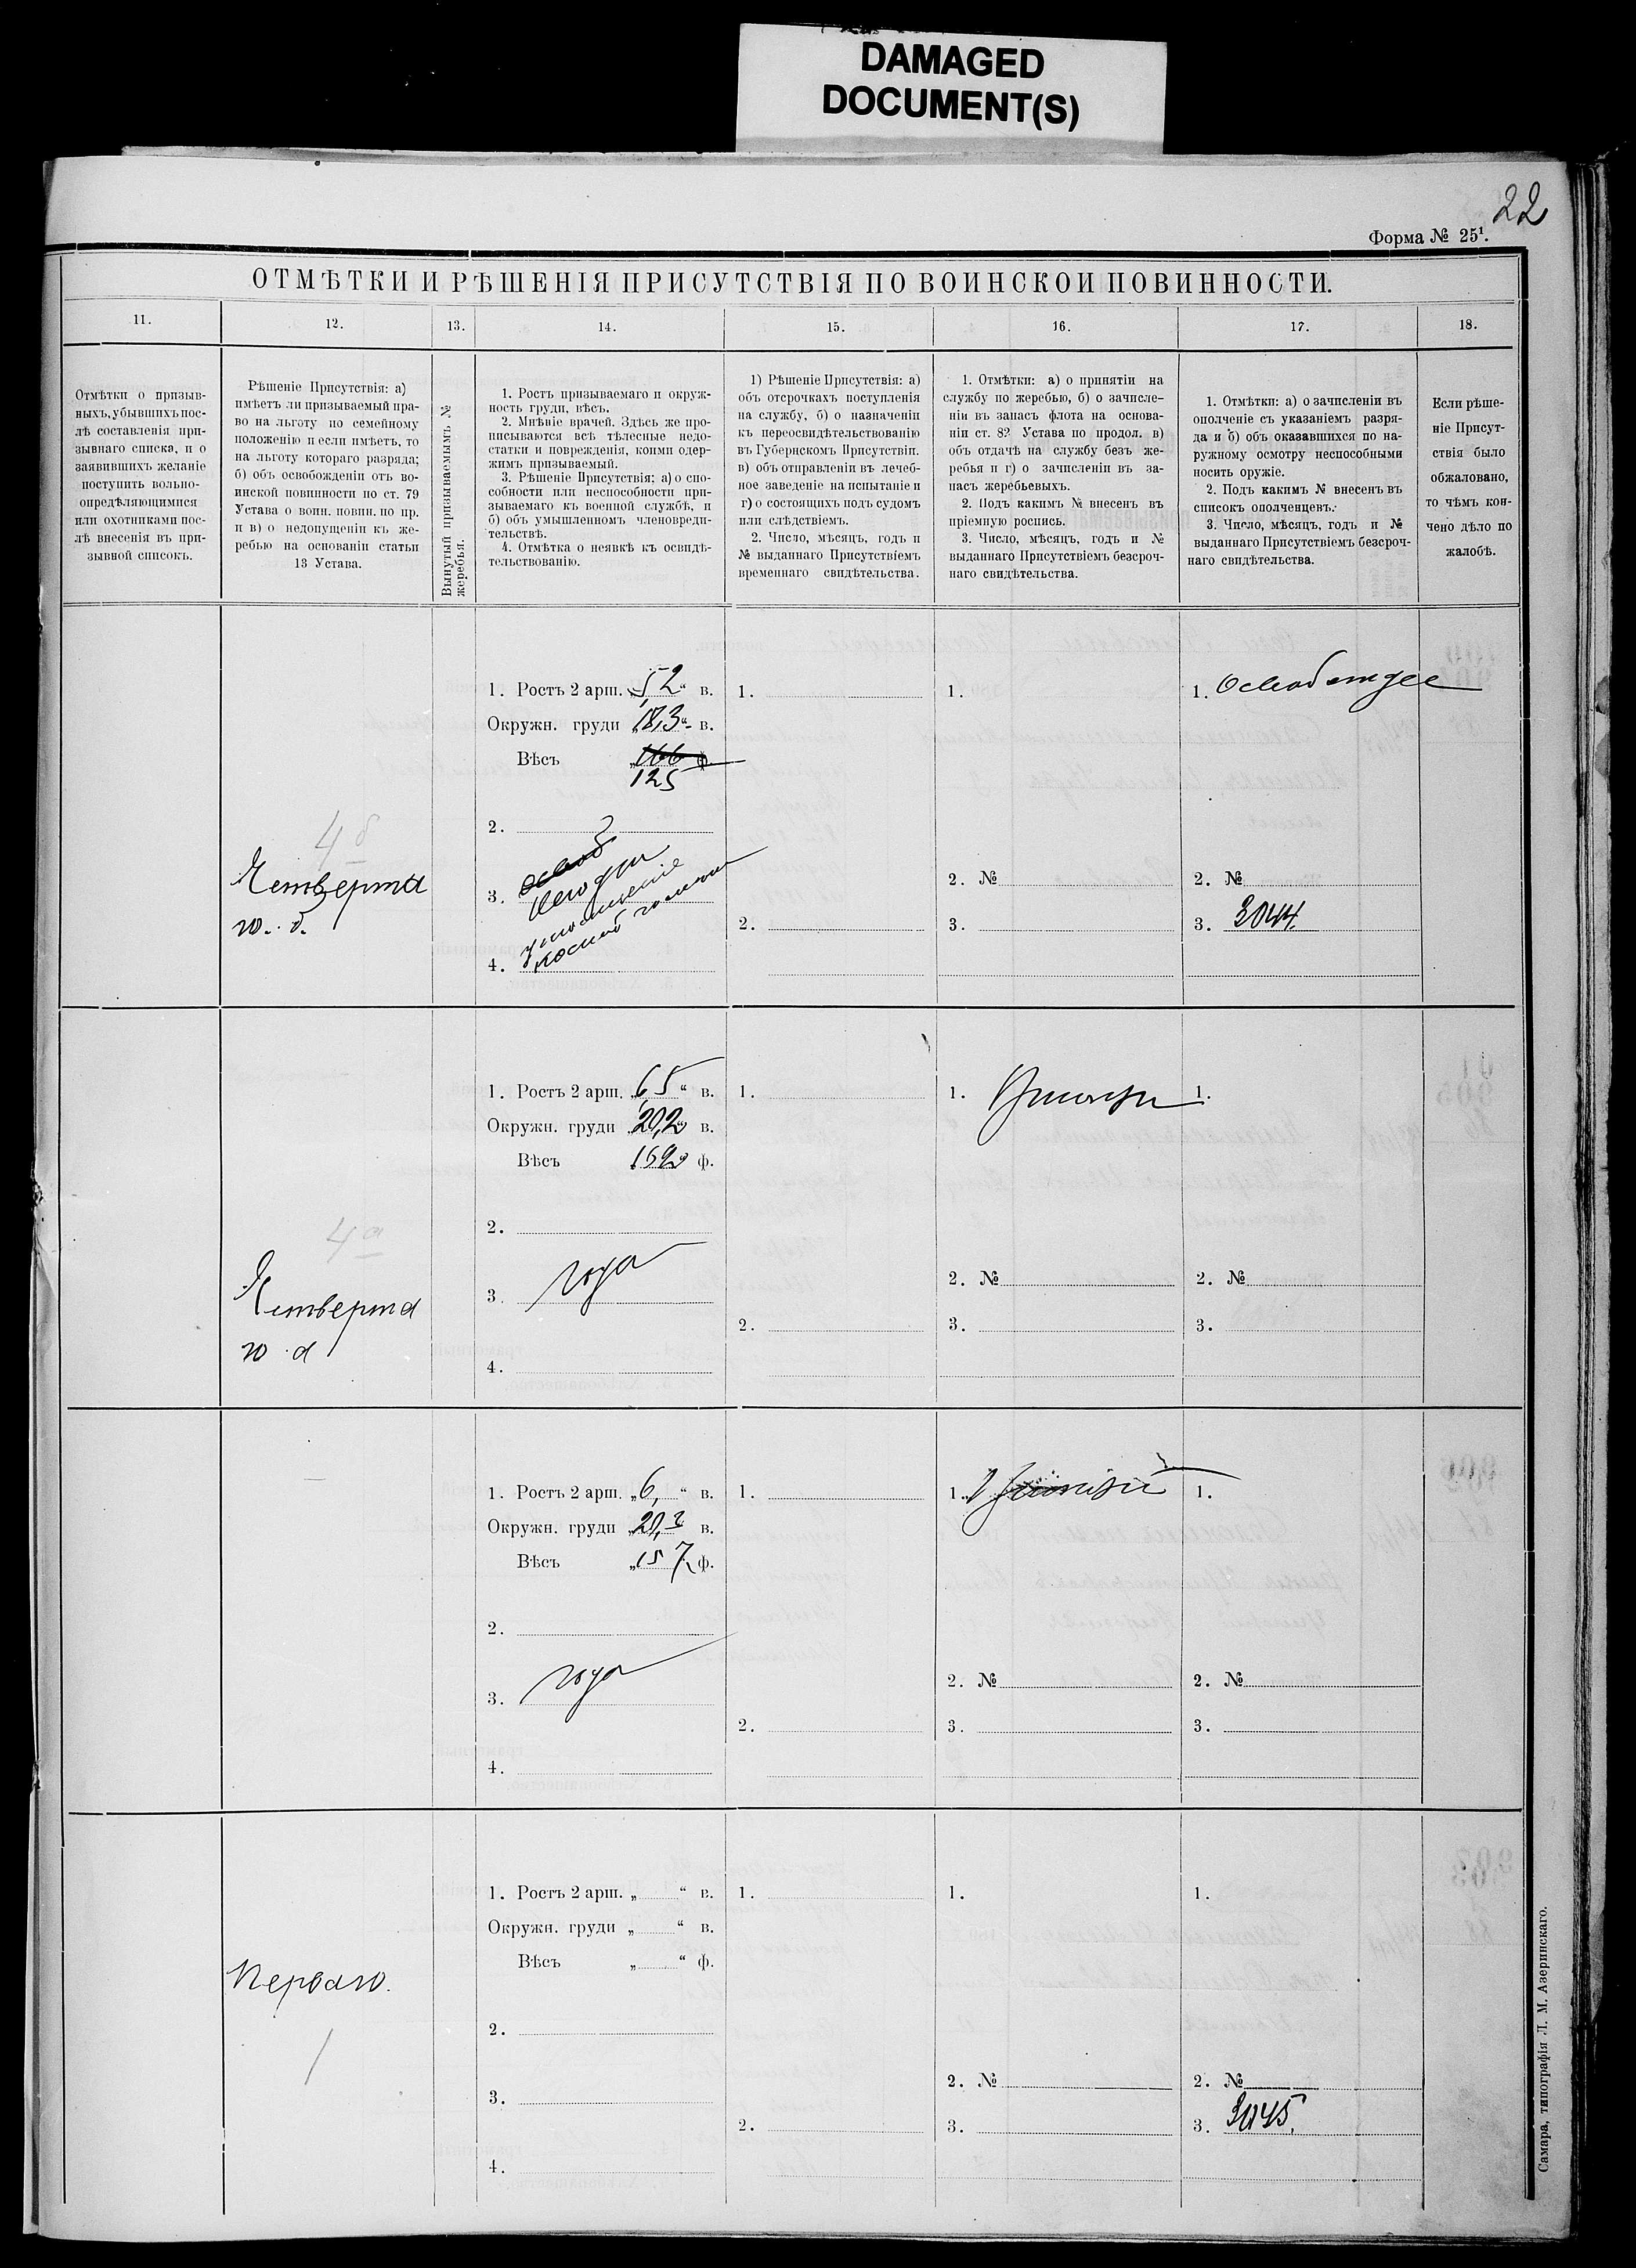 DAMAGED
DOCUMENT(S)
22
Форма № 25¹.
ОТМѢТКИ И РѢШЕНІЯ ПРИСУТСТВІЯ ПО ВОИНСКОИ ПОВИННОСТИ.
11.
12.
13.
14.
15.
16.
17.
18.
Отмѣтки о призыв-
ныхъ, убывшихъ пос-
лѣ составленія при-
зывнаго списка, и о
заявившихъ желаніе
поступить вольно-
опредѣляющимися
или охотниками пос-
лѣ внесенія въ при-
зывной списокъ.
Рѣшеніе Присутствія: а)
имѣетъ ли призываемый пра-
во на льготу по семейному
положенію и если имѣетъ, то
на льготу котораго разряда;
б) объ освобожденіи отъ во-
инской повинности по ст. 79
Устава о воин. повин. по пр.
и в) о недопущеніи къ же-
ребью на основаніи статьи
13 Устава.
Вынутый призываемымъ №
жеребья.
1. Ростъ призываемаго и окруж-
ность груди, вѣсъ.
2. Мнѣніе врачей. Здѣсь же про-
писываются всѣ тѣлесные недо-
статки и поврежденія, коими одер-
жимъ призываемый.
3. Рѣшеніе Присутствія: а) о спо-
собности или неспособности при-
зываемаго къ военной службѣ, и
б) объ умышленномъ членовреди-
тельствѣ.
4. Отмѣтка о неявкѣ къ освидѣ-
тельствованію.
1) Рѣшеніе Присутствія: а)
объ отсрочкахъ поступленія
на службу, б) о назначеніи
къ переосвидѣтельствованію
въ Губернскомъ Присутствіи.
в) объ отправленіи въ лечеб-
ное заведеніе на испытаніе и
г) о состоящихъ подъ судомъ
или слѣдствіемъ.
2. Число, мѣсяцъ, годъ и
№ выданнаго Присутствіемъ
временнаго свидѣтельства.
1. Отмѣтки: а) о принятіи на
службу по жеребью, б) о зачисле-
ніи въ запасъ флота на основа-
ніи ст. 82 Устава по продол. в)
объ отдачѣ на службу безъ же-
ребья и г) о зачисленіи въ за-
пасъ жеребьевыхъ.
2. Подъ какимъ № внесенъ въ
пріемную роспись.
3. Число, мѣсяцъ, годъ и №
выданнаго Присутствіемъ безсроч-
наго свидѣтельства.
1. Отмѣтки: а) о зачисленіи въ
ополченіе съ указаніемъ разря-
да и б) объ оказавшихся по на-
ружному осмотру неспособными
носить оружіе.
2. Подъ какимъ № внесенъ въ
списокъ ополченцевъ.
3. Число, мѣсяцъ, годъ и №
выданнаго Присутствіемъ безсроч-
наго свидѣтельства.
Если рѣше-
ніе Присут-
ствія было
обжаловано,
то чѣмъ кон-
чено дѣло по
жалобѣ.
4б
Четверта
го. б.
1. Ростъ 2 арш. „5,2“ в.
Окружн. груди „18,3“ в.
Вѣсъ „166 ф.
125
2.
3.
4.
1.
2.
1.
2. №
3.
1.
2. №
3. 3044.
4а
Четверта
го а
1. Ростъ 2 арш. „6,5“ в.
Окружн. груди „20,2“ в.
Вѣсъ „169“ ф.
2.
3. годн
4.
1.
2.
1.
2. №
3.
1.
2. №
3.
1. Ростъ 2 арш. „6,“ в.
Окружн. груди „20,3 в.
Вѣсъ „157 ф.
2.
3. годн
4.
1.
2.
1.
2. №
3.
1.
2. №
3.
Перваго.
1
1. Ростъ 2 арш. „ “ в.
Окружн. груди „ “ в.
Вѣсъ „ “ ф.
2.
3.
4.
1.
2.
1.
2. №
3.
1.
2. №
3. 3045.
Самара, типографія Л. М. Азеринскаго.